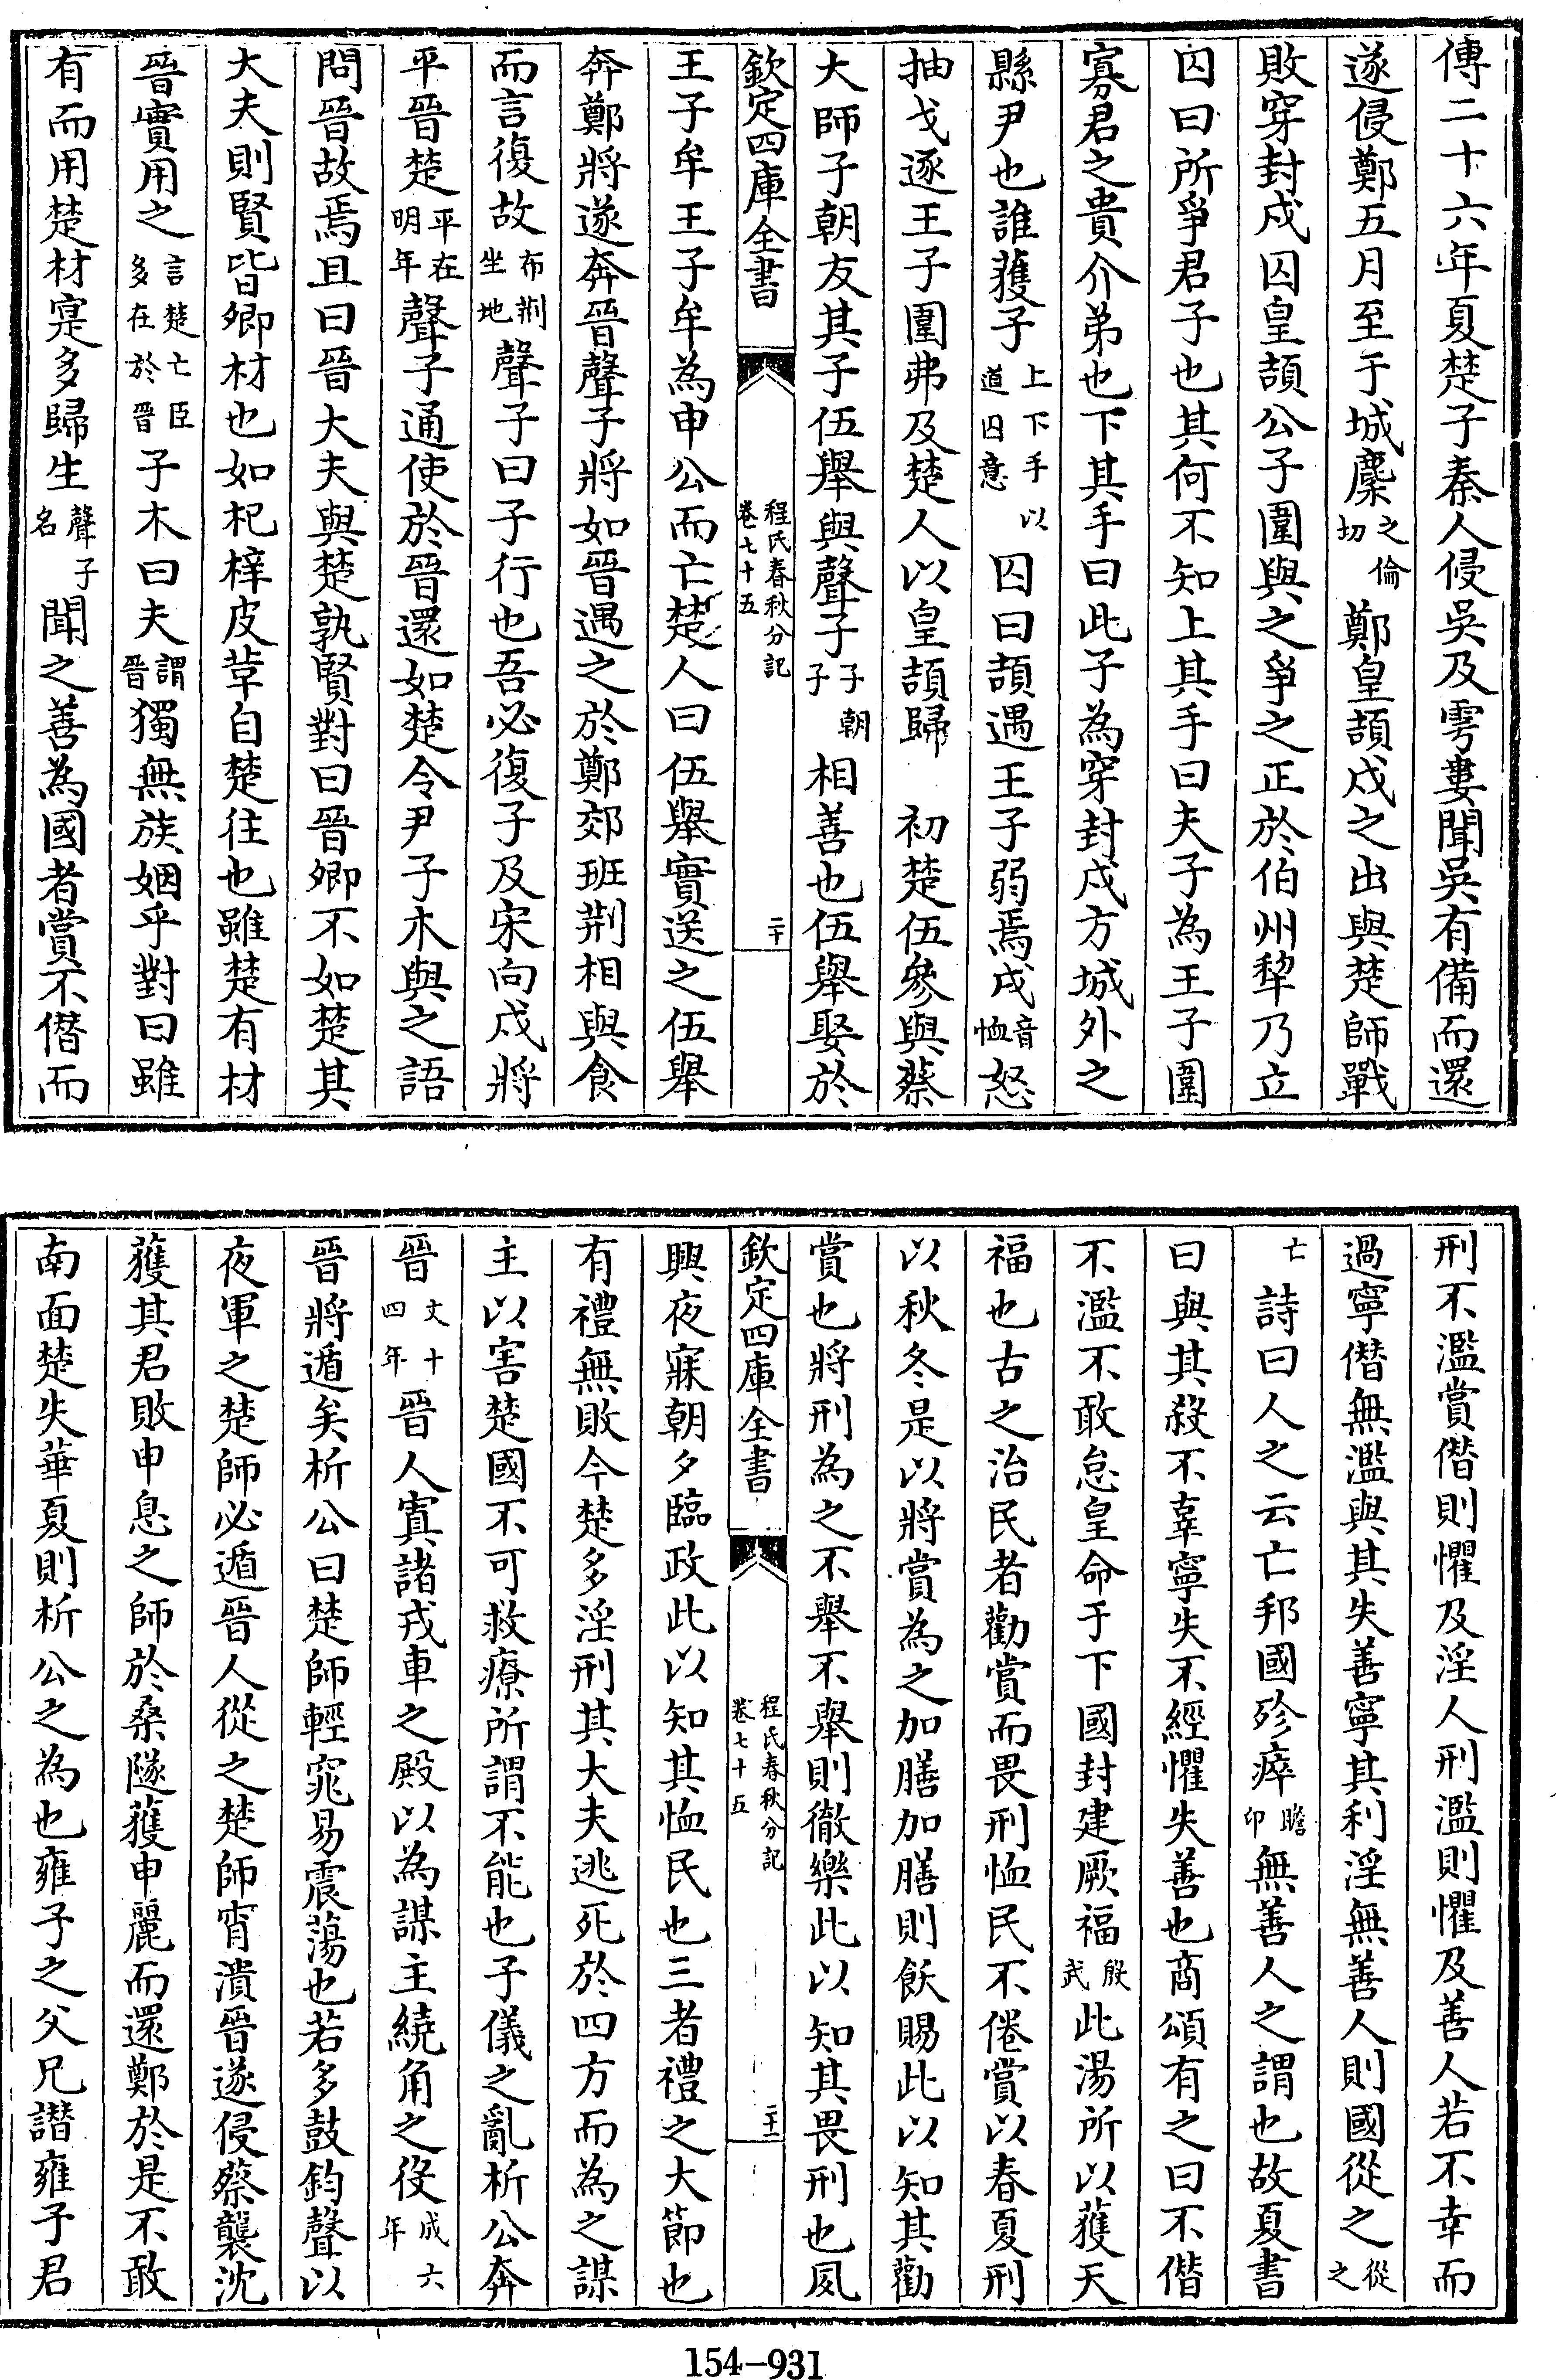 傳二十六年夏楚子秦人侵吳及雩婁聞吳有備而還
遂侵鄭五月至于城麇之倫切鄭皇頡戍之出與楚師戰
敗穿封戍囚皇頡公子圍與之爭之正於伯州犂乃立
囚曰所爭君子也其何不知上其手曰夫子為王子圍
寡君之貴介弟也下其手曰此子為穿封戍方城外之
縣尹也誰獲子上下手以道囚意囚曰頡遇王子弱焉戍音恤怒
抽戈逐王子圍弗及楚人以皇頡歸 初楚伍參與蔡
大師子朝友其子伍舉與聲子子朝子相善也伍舉娶於
欽定四庫全書 程氏春秋分記 卷七十五 二十
王子牟王子牟為申公而亡楚人曰伍舉實送之伍舉
奔鄭將遂奔晉聲子將如晉遇之於鄭郊班荆相與食
而言復故布荆坐地聲子曰子行也吾必復子及宋向戌將
平晉楚平在明年聲子通使於晉還如楚令尹子木與之語
問晉故焉且曰晉大夫與楚孰賢對曰晉卿不如楚其
大夫則賢皆卿材也如杞梓皮革自楚往也雖楚有材
晉實用之言楚亡臣多在於晉子木曰夫謂晉獨無族姻乎對曰雖
有而用楚材寔多歸生聲子名聞之善為國者賞不僭而
刑不濫賞僭則懼及淫人刑濫則懼及善人若不幸而
過寧僭無濫與其失善寧其利淫無善人則國從之從之
亡詩曰人之云亡邦國殄瘁瞻卬無善人之謂也故夏書
曰與其殺不辜寧失不經懼失善也商頌有之曰不僭
不濫不敢怠皇命于下國封建厥福殷武此湯所以獲天
福也古之治民者勸賞而畏刑恤民不倦賞以春夏刑
以秋冬是以將賞為之加膳加膳則飫賜此以知其勸
賞也將刑為之不舉不舉則徹樂此以知其畏刑也夙
欽定四庫全書 程氏春秋分記 卷七十五 二十一
興夜寐朝夕臨政此以知其恤民也三者禮之大節也
有禮無敗今楚多淫刑其大夫逃死於四方而為之謀
主以害楚國不可救療所謂不能也子儀之亂析公奔
晉文十四年晉人寘諸戎車之殿以為謀主繞角之役成六年
晉將遁矣析公曰楚師輕窕易震蕩也若多鼓鈞聲以
夜軍之楚師必遁晉人從之楚師宵潰晉遂侵蔡襲沈
獲其君敗申息之師於桑隧獲申麗而還鄭於是不敢
南面楚失華夏則析公之為也雍子之父兄譖雍子君
154-931